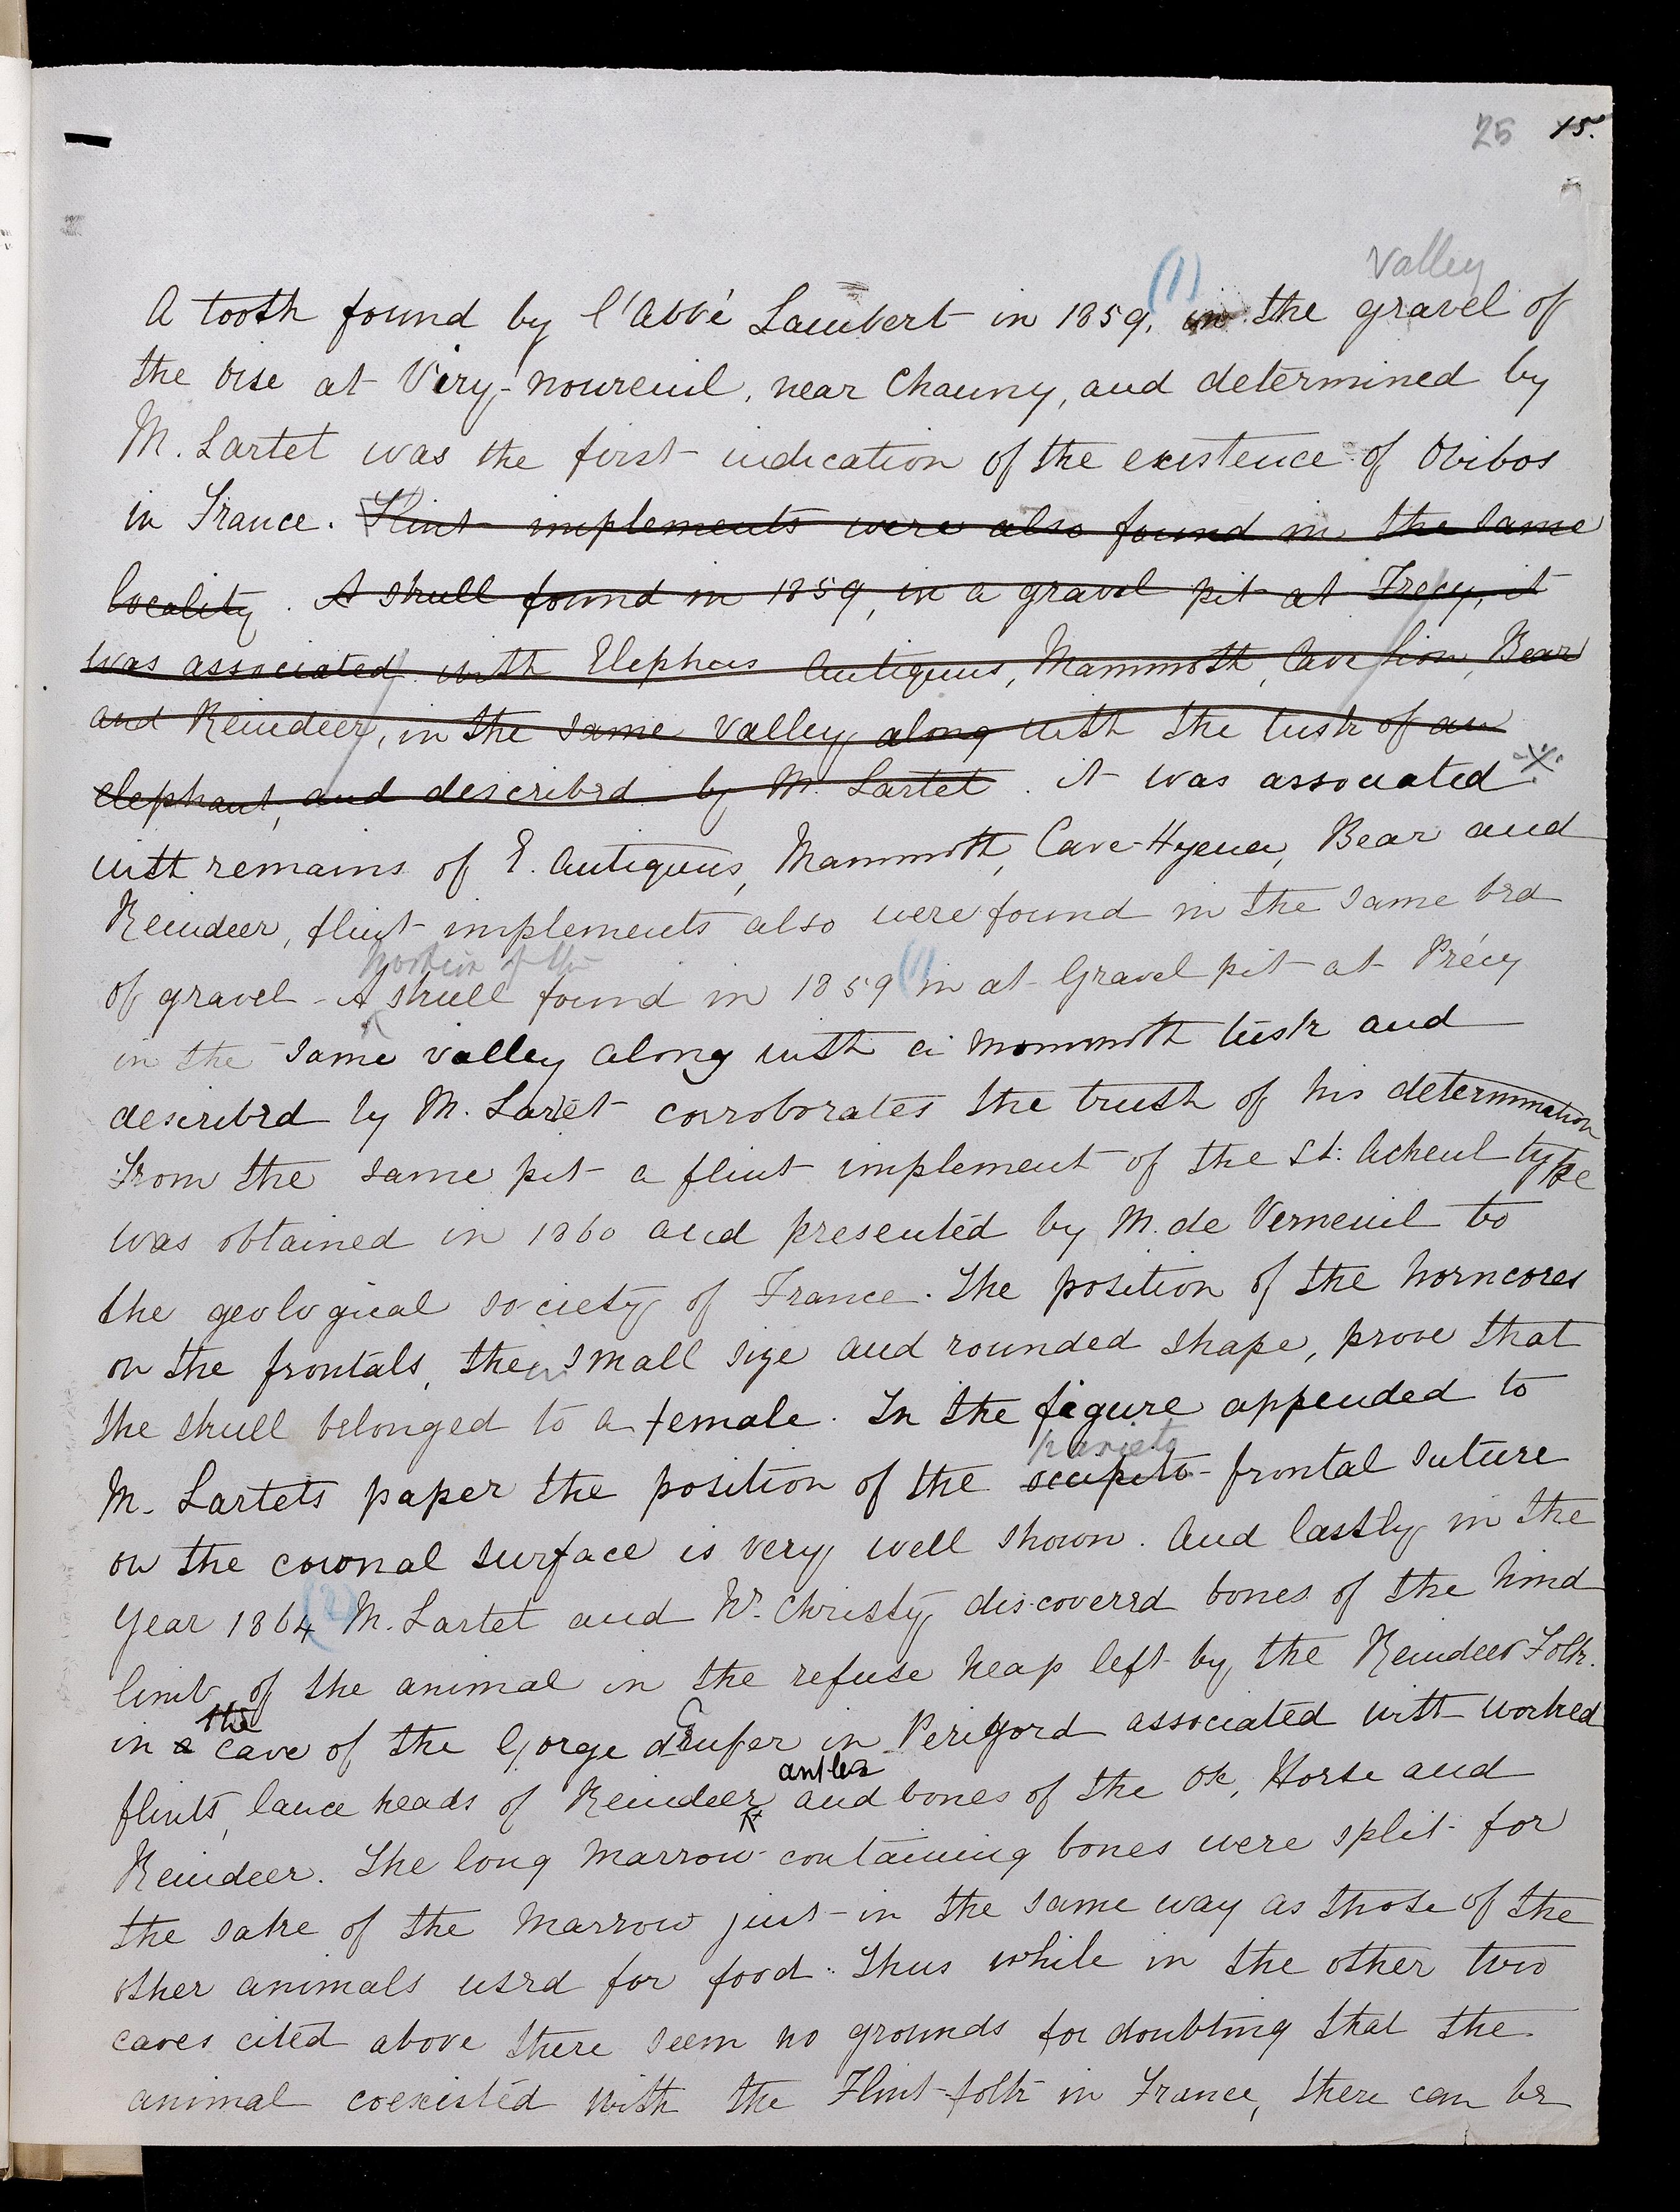 25 15.
valley
A tooth found by l'Abbé Lambert in 1859, (1) in the gravel of
the Oise at Viry-noureuil, near Chauny, and determined by
M. Lartet was the first indication of the existence of Ovibos
in France. Flint implements were also found in the same
locality. A skull found in 1859, in a gravel pit at Precy, it
was associated with Elephas Antiquus, Mammoth, Cave lion, Bear
and Reindeer, in the same valley along with the tusk of an
elephant, and described by M. Lartet. it was associated
with remains of E. Antiquus, Mammoth, Cave-Hyena, Bear and
Reindeer, flint implements also were found in the same bed
portion of the
of gravel - A skull found in 1859 (1) in at Gravel pit at Précy
in the same valley along with a mammoth tusk and
described by M. Lartet corroborates the truth of his determination
From the same pit a flint implement of the St. Acheul type
was obtained in 1860 and presented by M. de Verneuil to
the geological society of France. The position of the horncores
on the frontals, their small size and rounded shape, prove that
the skull belonged to a female. In the figure appended to
parieto
M. Lartets paper the position of the occipito-frontal suture
on the coronal surface is very well shown. And lastly in the
Year 1864 (2) M. Lartet and Mr. Christy discovered bones of the hind
limb of the animal in the refuse heap left by the Reindeer Folk.
the
in a cave of the Gorge d'Enfer in Perigord associated with worked
antler
flints, lance heads of Reindeer and bones of the Ox, Horse and
Reindeer. The long Marrow-containing bones were split for
the sake of the Marrow just in the same way as those of the
other animals used for food. Thus while in the other two
caves cited above there seem no grounds for doubting that the
animal coexisted with the Flint-folk in France, there can be